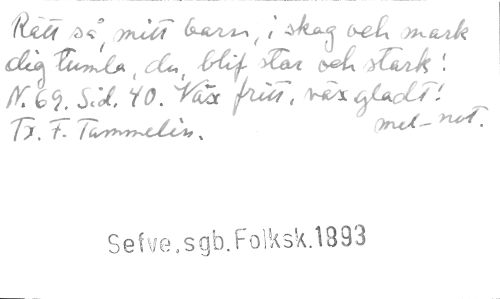 Rätt så, mitt barn, i skog och mark
dig tumla, du, blif stor och stark!
N. 69. Sid. 40. Väx fritt, väx gladt!
Tx. F. Tammelin.
mel-not.
Sefve, sgb. Folksk. 1893